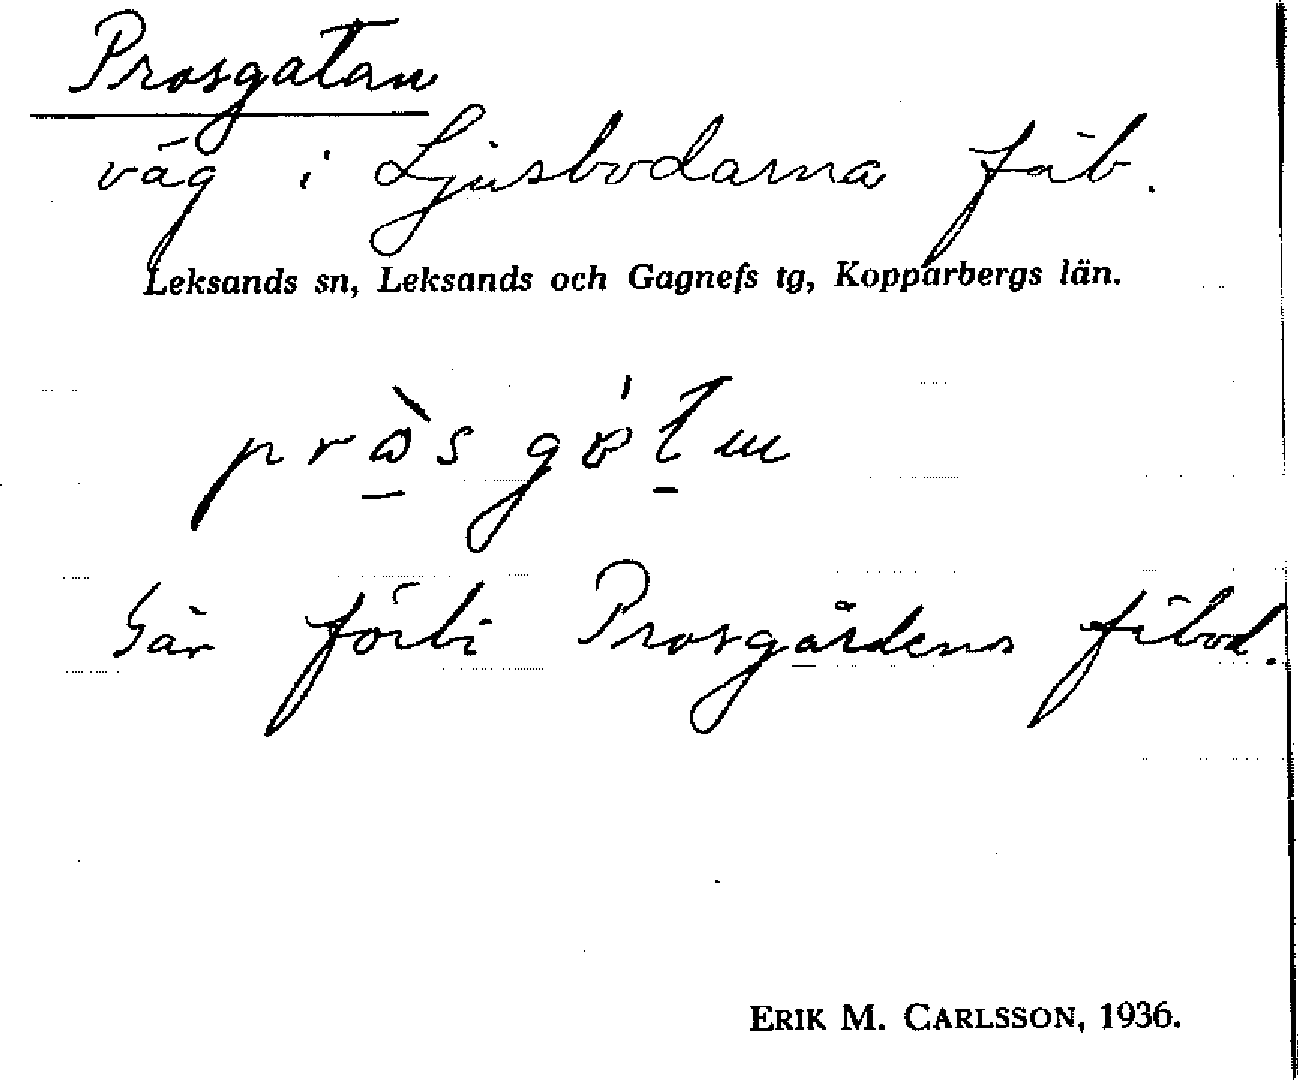 Prosgatan
väg i Ljusbodarna fäb.
Leksands sn, Leksands och Gagnefs tg, Kopparbergs län.
Går förbi Prosgårdens fäbod.
ERIK M. CARLSSON, 1936.